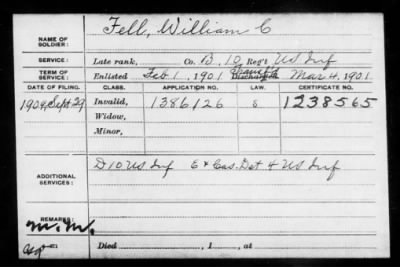 NAME OF SOLDIER: Fell, William C
SERVICE: Late rank, Co. B, 10 Reg't US Inf
TERM OF SERVICE: Enlisted Feb 1, 1901 Mar 4, 1901
DATE OF FILING. CLASS. APPLICATION NO. LAW. CERTIFICATE NO.
1904, Sept 29 Invalid, 1386126 1238565
Widow,
Minor,
ADDITIONAL SERVICES: D 10 US Inf E & Cas. Det 4 US Inf
REMARKS:
M.M.
Died , 1 , at